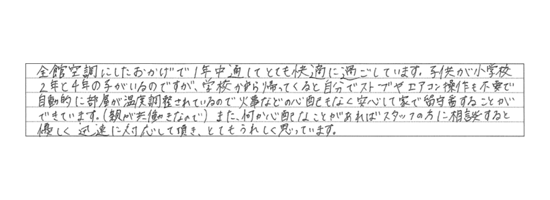 全館空調にしたおかげで1年中通してとても快適に過ごしています。子供が小学校
2年と4年の子がいるのですが、学校から帰ってくると自分でストーブやエアコン操作も不要で
自動的に部屋が温度調整されているので火事などの心配もなく安心して家で留守番することが
できています。(親が共働きなので)また、何か心配なことがあればスタッフの方に相談すると
優しく迅速に対応して頂き、とてもうれしく思っています。